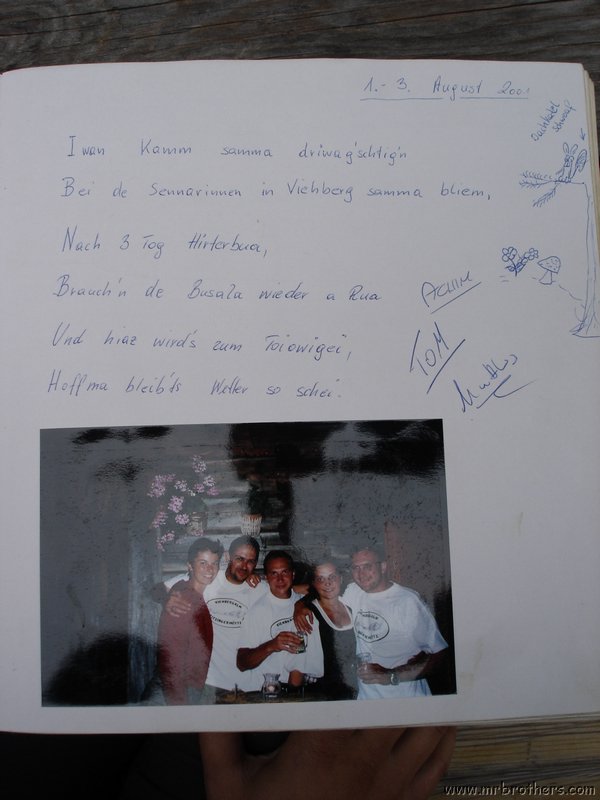 1. - 3. August 2001
Oachkatzl
schwoaf
I wan Kamm samma driwag'schtig'n
Bei de Sennarinnen in Viehberg samma bliem,
Nach 3 Tog Hirterbua,
Brauch'n de Busala wieder a Rua
Und hiaz wird's zum Toiowigei,
Hoff'ma bleib'ts Wetter so schei.
ACHIM
TOM
VIEHBERGALM
www.mrbrothers.com